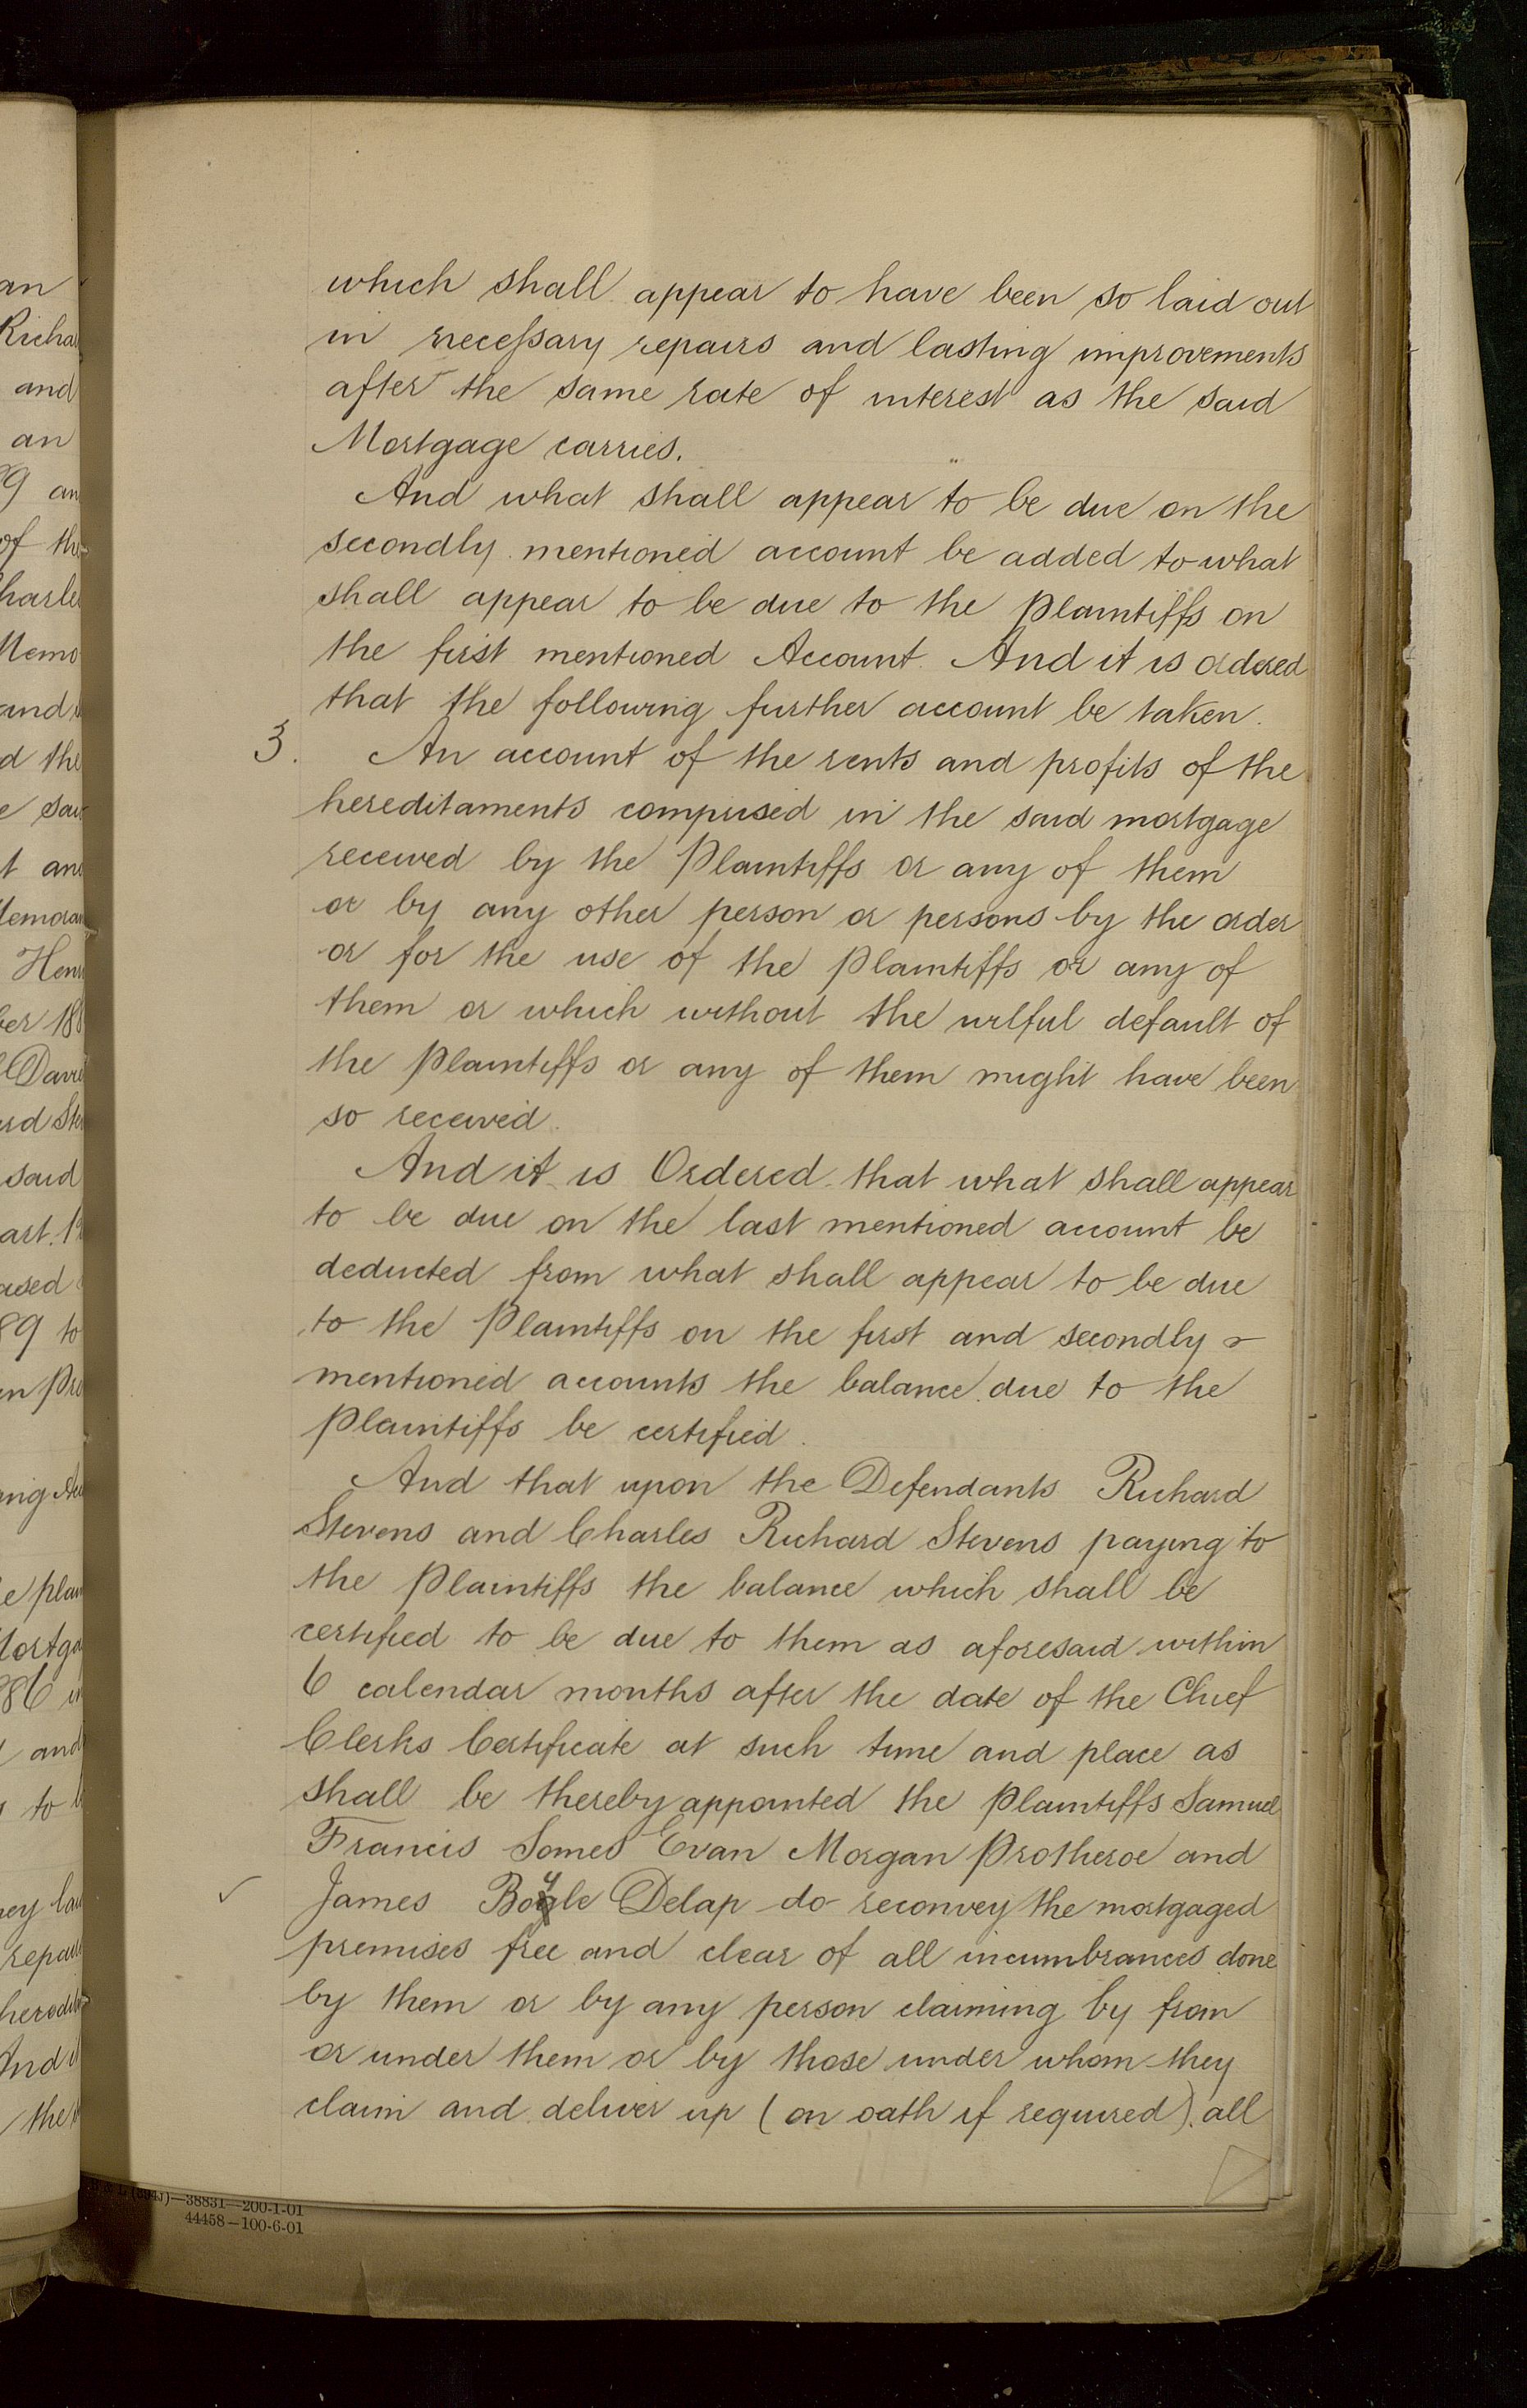 which shall appear to have been so laid out
in necessary repairs and lasting improvements
after the same rate of interest as the said
Mortgage carries.
And what shall appear to be due on the
secondly mentioned account be added to what
shall appear to be due to the Plaintiffs on
the first mentioned Account. And it is ordered
that the following further account be taken.
3. An account of the rents and profits of the
hereditaments comprised in the said mortgage
received by the Plaintiffs or any of them
or by any other person or persons by the order
or for the use of the Plaintiffs or any of
them or which without the wilful default of
the Plaintiffs or any of them might have been
so received.
And it is Ordered that what shall appear
to be due on the last mentioned account be
deducted from what shall appear to be due
to the Plaintiffs on the first and secondly
mentioned accounts the balance due to the
Plaintiffs be certified.
And that upon the Defendants Richard
Stevens and Charles Richard Stevens paying to
the Plaintiffs the balance which shall be
certified to be due to them as aforesaid within
6 calendar months after the date of the Chief
Clerks Certificate at such time and place as
shall be thereby appointed the Plaintiffs Samuel
Francis Somes Evan Morgan Protheroe and
James Boyle Delap do reconvey the mortgaged
premises free and clear of all incumbrances done
by them or by any person claiming by from
or under them or by those under whom they
claim and deliver up (on oath if required) all
38831—200-1-01
44458—100-6-01